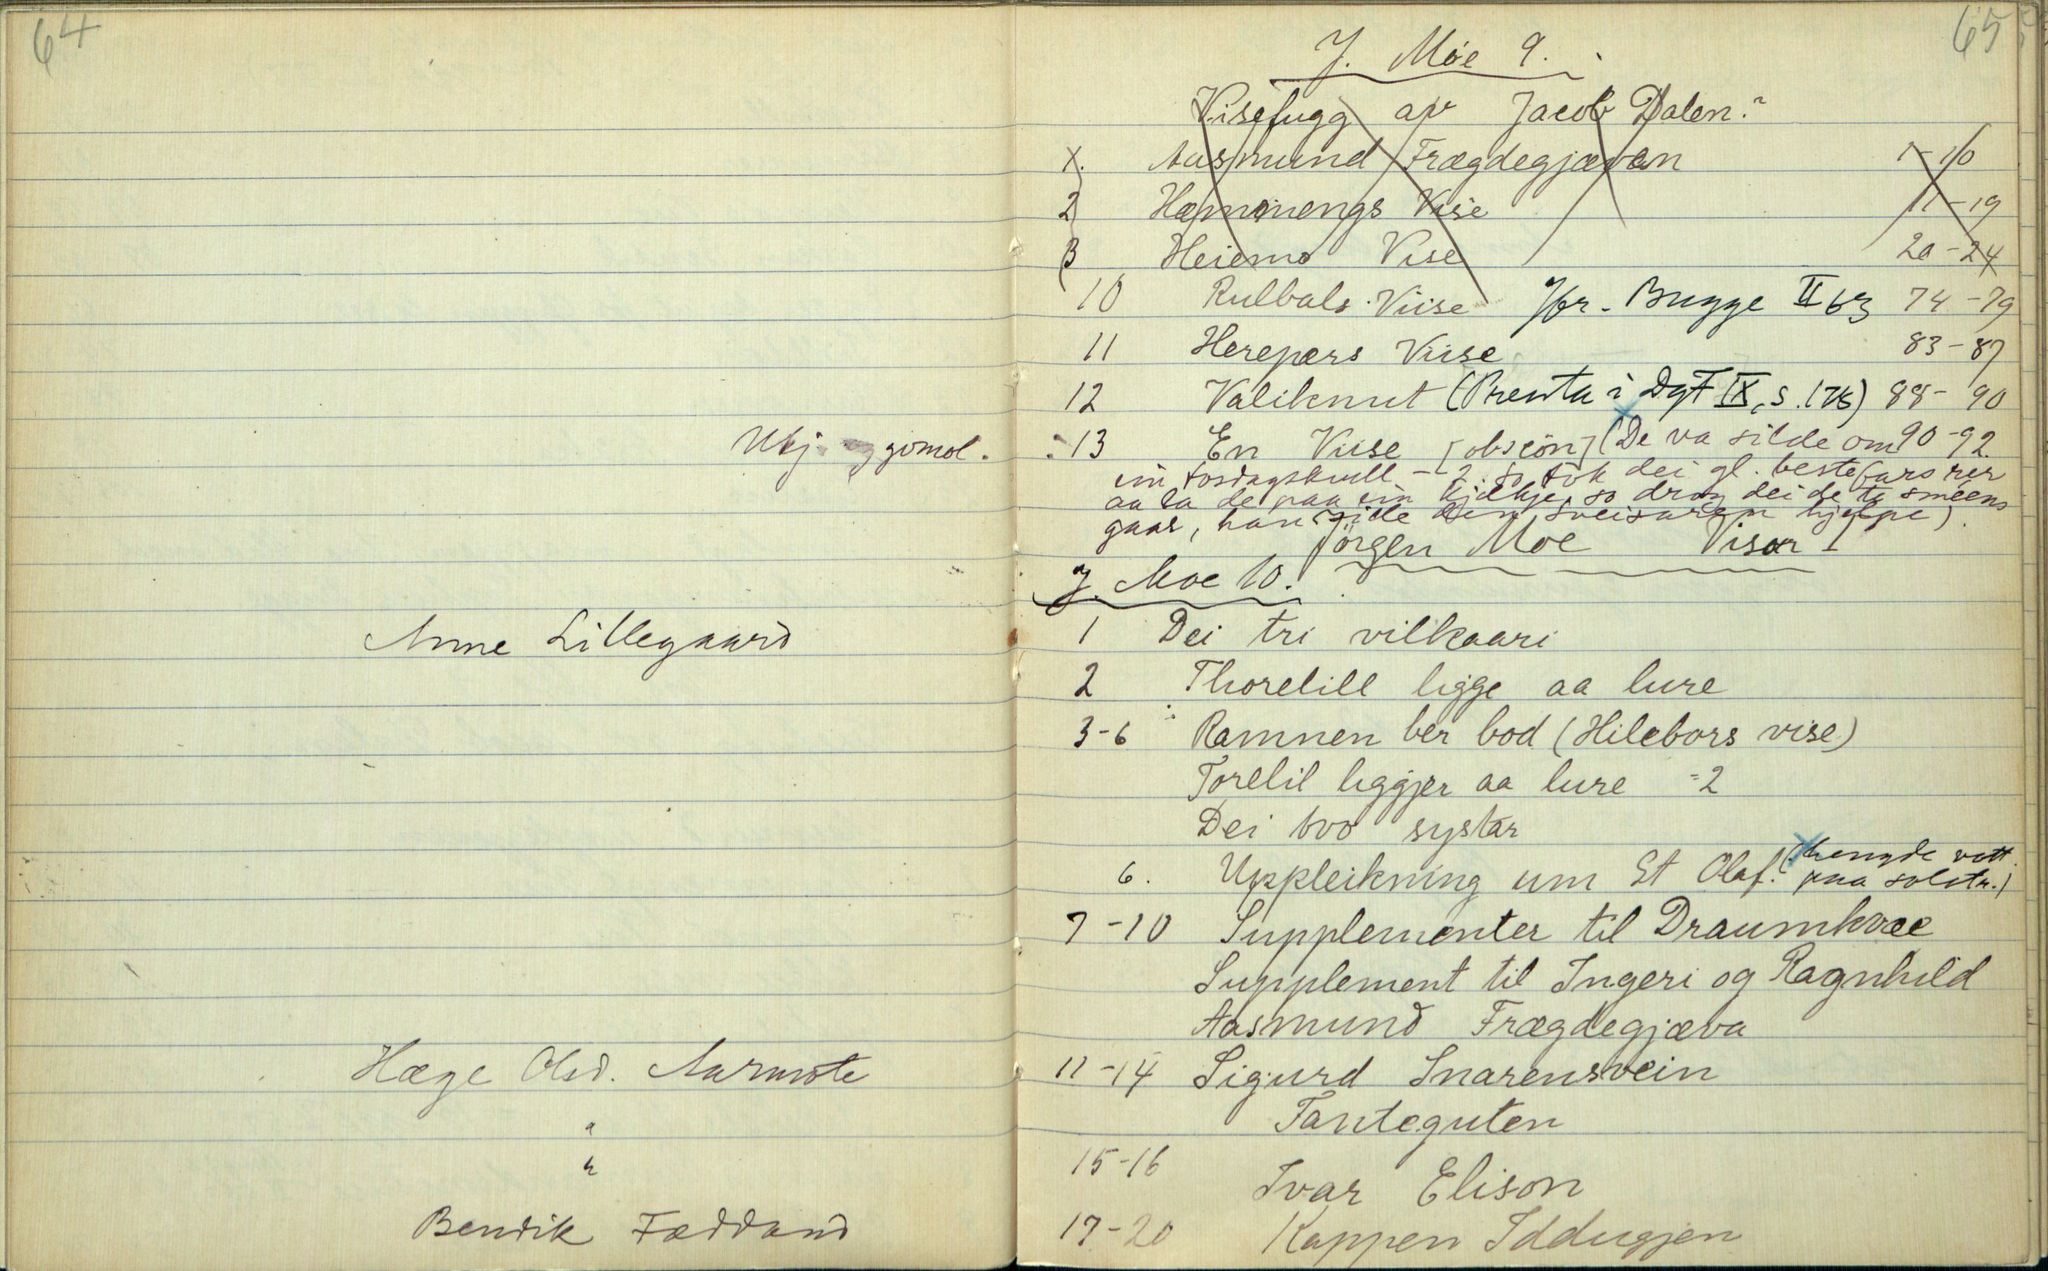 64
Utj. og gomol.
Anne Lillegaard
Hæge Olsd. Aarmote
"
"
Bendik Fæddand
65
J. Moe 9.
Visefugg av Jacob Dalen?
1. Aasmund Frægdegjævan 1-10
2 Hæmmengs Vise 11-19
3 Heiemo Vise 20-24
10 Rulbals Viise Jfr. Bugge II b3 74-79
11 Herepærs Viise 83-87
12 Valiknut (Prenta i DgF IX, s. 176) 88-90
13 En Viise [obscön] (De va silde om 90-92
ein torsdagskvell - 2. so tok dei gl. bestefars rer
aa la de paa ein kjelkje, so drog dei de te smeens
gaar, han
Jörgen Moe Visor I
J. Moe 10.
1 Dei tri vilkaari
2 Thorelill ligge aa lure
3-6 Ramnen ber bod (Hilebors vise)
Torelil liggjer aa lure =2
Dei tvo systar
6. Uppleikning um St Olaf. (hengde vott. paa solstr.)
7-10 Supplementer til Draumkvæe
Supplement til Ingeri og Ragnhild
Aasmund Frægdegjæva
11-14 Sigurd Snarensvein
Fanteguten
15-16
Ivar Elison
17-20 Kappen Iddugjen